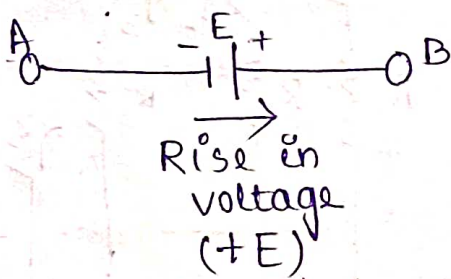 A - E + B
Rise in
voltage
(+E)